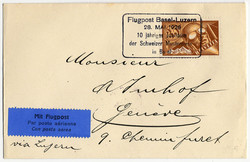 Flugpost Basel-Luzern
28. MAI. 1926
10 jähriges Jubiläum
der Schweizer
in Basel
Monsieur
Imhof
Genève
9. Chemin Furet
Mit Flugpost
Par poste aérienne
Con posta aerea
via Luzern